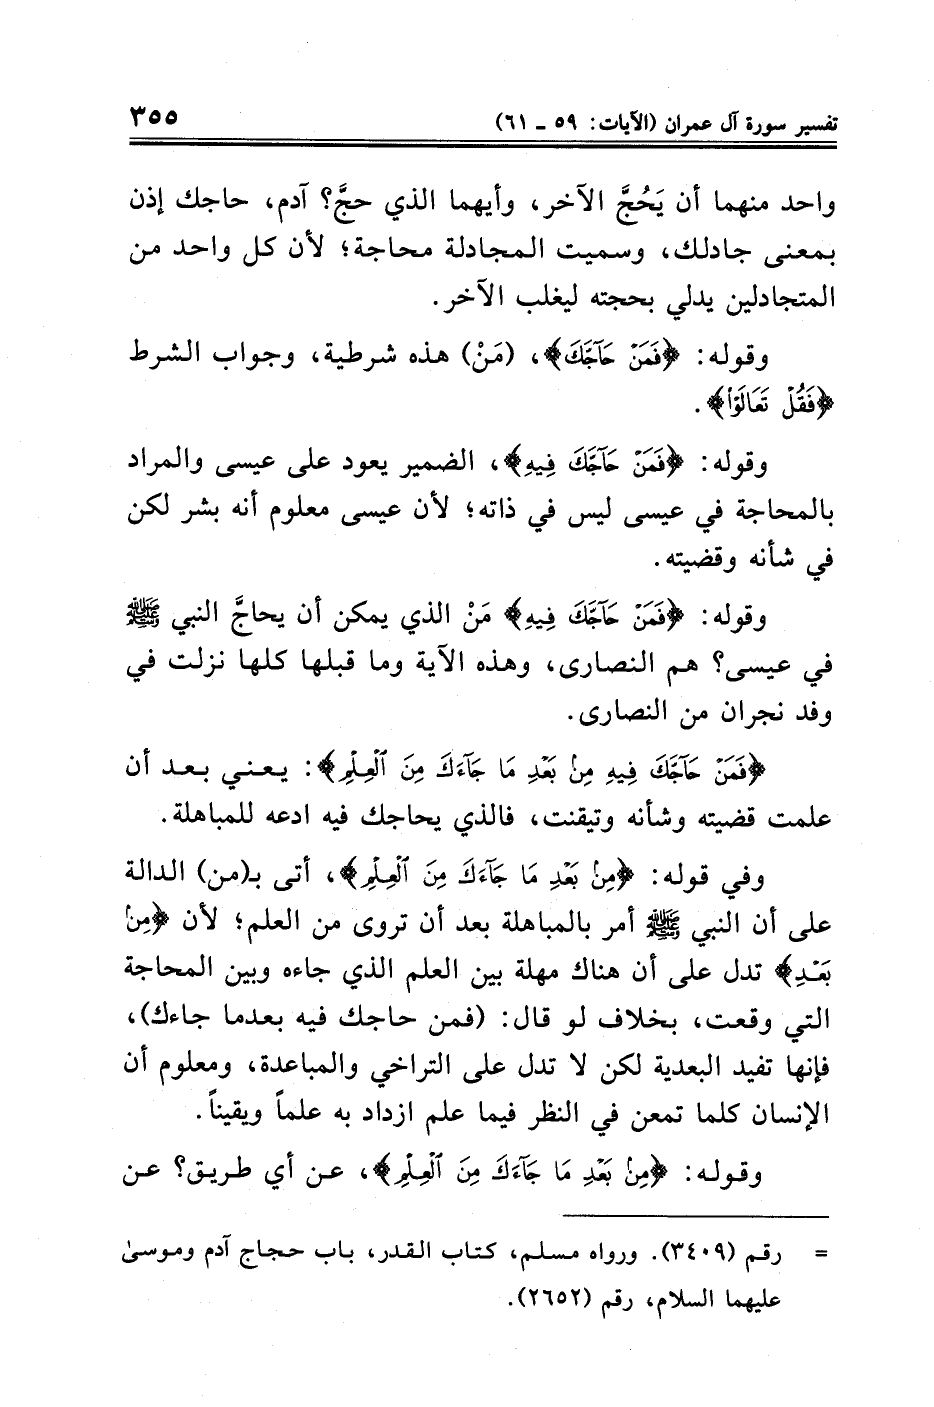 تفسير سورة آل عمران (الآيات: ٥٩ ـ ٦١)
٣٥٥
واحد منهما أن يَحُجَّ الآخر، وأيهما الذي حجَّ؟ آدم، حاجك إذن
بمعنى جادلك، وسميت المجادلة محاجة؛ لأن كل واحد من
المتجادلين يدلي بحجته ليغلب الآخر.
وقوله: ﴿فَمَنْ حَآجَّكَ﴾، (مَنْ) هذه شرطية، وجواب الشرط
﴿فَقُلْ تَعَالَوْا﴾.
وقوله: ﴿فَمَنْ حَآجَّكَ فِيهِ﴾، الضمير يعود على عيسى والمراد
بالمحاجة في عيسى ليس في ذاته؛ لأن عيسى معلوم أنه بشر لكن
في شأنه وقضيته.
وقوله: ﴿فَمَنْ حَآجَّكَ فِيهِ﴾ مَنْ الذي يمكن أن يحاجَّ النبي ﷺ
في عيسى؟ هم النصارى، وهذه الآية وما قبلها كلها نزلت في
وفد نجران من النصارى.
﴿فَمَنْ حَآجَّكَ فِيهِ مِنۢ بَعْدِ مَا جَآءَكَ مِنَ ٱلْعِلْمِ﴾: يعني بعد أن
علمت قضيته وشأنه وتيقنت، فالذي يحاجك فيه ادعه للمباهلة.
وفي قوله: ﴿مِنۢ بَعْدِ مَا جَآءَكَ مِنَ ٱلْعِلْمِ﴾، أتى بـ(من) الدالة
على أن النبي ﷺ أمر بالمباهلة بعد أن تروى من العلم؛ لأن ﴿مِنۢ
بَعْدِ﴾ تدل على أن هناك مهلة بين العلم الذي جاءه وبين المحاجة
التي وقعت، بخلاف لو قال: (فمن حاجك فيه بعدما جاءك)،
فإنها تفيد البعدية لكن لا تدل على التراخي والمباعدة، ومعلوم أن
الإنسان كلما تمعن في النظر فيما علم ازداد به علماً ويقيناً.
وقوله: ﴿مِنۢ بَعْدِ مَا جَآءَكَ مِنَ ٱلْعِلْمِ﴾، عن أي طريق؟ عن
= رقم (٣٤٠٩). ورواه مسلم، كتاب القدر، باب حجاج آدم وموسىٰ
عليهما السلام، رقم (٢٦٥٢).